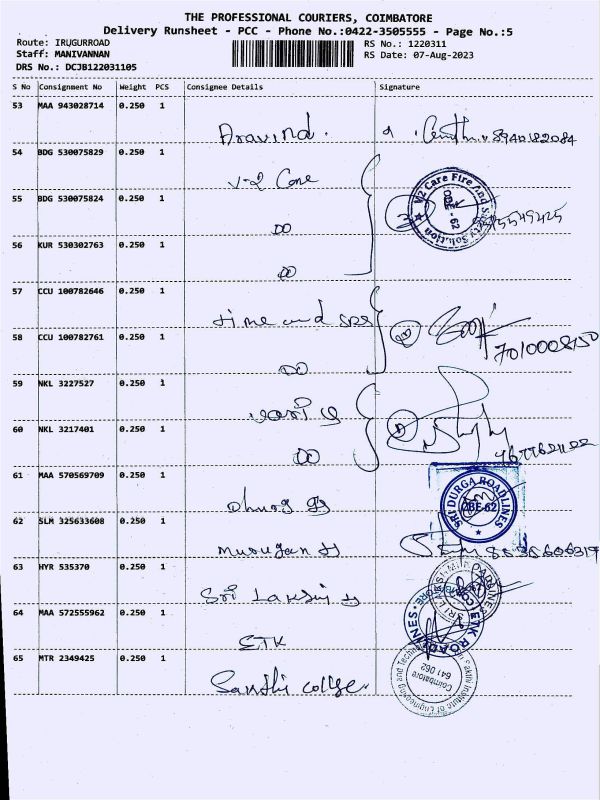 THE PROFESSIONAL COURIERS, COIMBATORE
Delivery Runsheet - PCC - Phone No.:0422-3505555 - Page No.:5
Route: IRUGURROAD
RS No.: 1220311
Staff: MANIVANNAN
RS Date: 07-Aug-2023
DRS No.: DCJB122031105
S No Consignment No Weight PCS Consignee Details Signature
53 MAA 943028714 0.250 1 Aravind. 8940182084
54 BDG 530075829 0.250 1 V-2 Care
V2 Care Fire And Safety Solution
CBE - 62
55 BDG 530075824 0.250 1 DO
56 KUR 530302763 0.250 1 DO
57 CCU 100782646 0.250 1 time and
58 CCU 100782761 0.250 1 DO
7010008150
59 NKL 3227527 0.250 1
60 NKL 3217401 0.250 1 DO
61 MAA 570569709 0.250 1
SRI DURGA ROADLINES
CBE-62
62 SLM 325633608 0.250 1 Murugan
63 HYR 535370 0.250 1 Sri
64 MAA 572555962 0.250 1 ETK
ETK ROADLINES
65 MTR 2349425 0.250 1 Sakthi college.
Sakthi Institute of Engineering and
Coimbatore
641 062